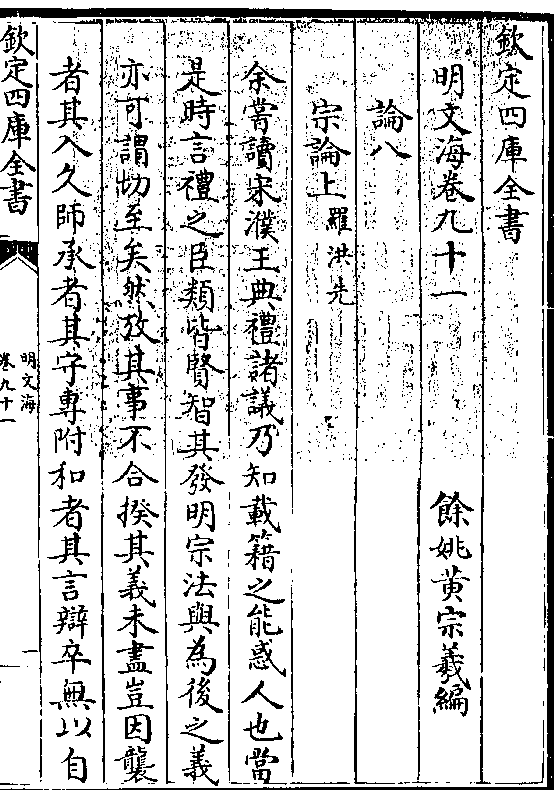 欽定四庫全書
明文海卷九十一
餘姚黄宗羲編
論八
宗論上 羅洪先
余嘗讀宋濮王典禮諸議乃知載籍之能惑人也當
是時言禮之臣類皆賢智其發明宗法與為後之義
亦可謂切至矣然攷其事不合揆其義未盡豈因襲
者其入久師承者其守專附和者其言辯卒無以自
欽定四庫全書
明文海
卷九十一
一